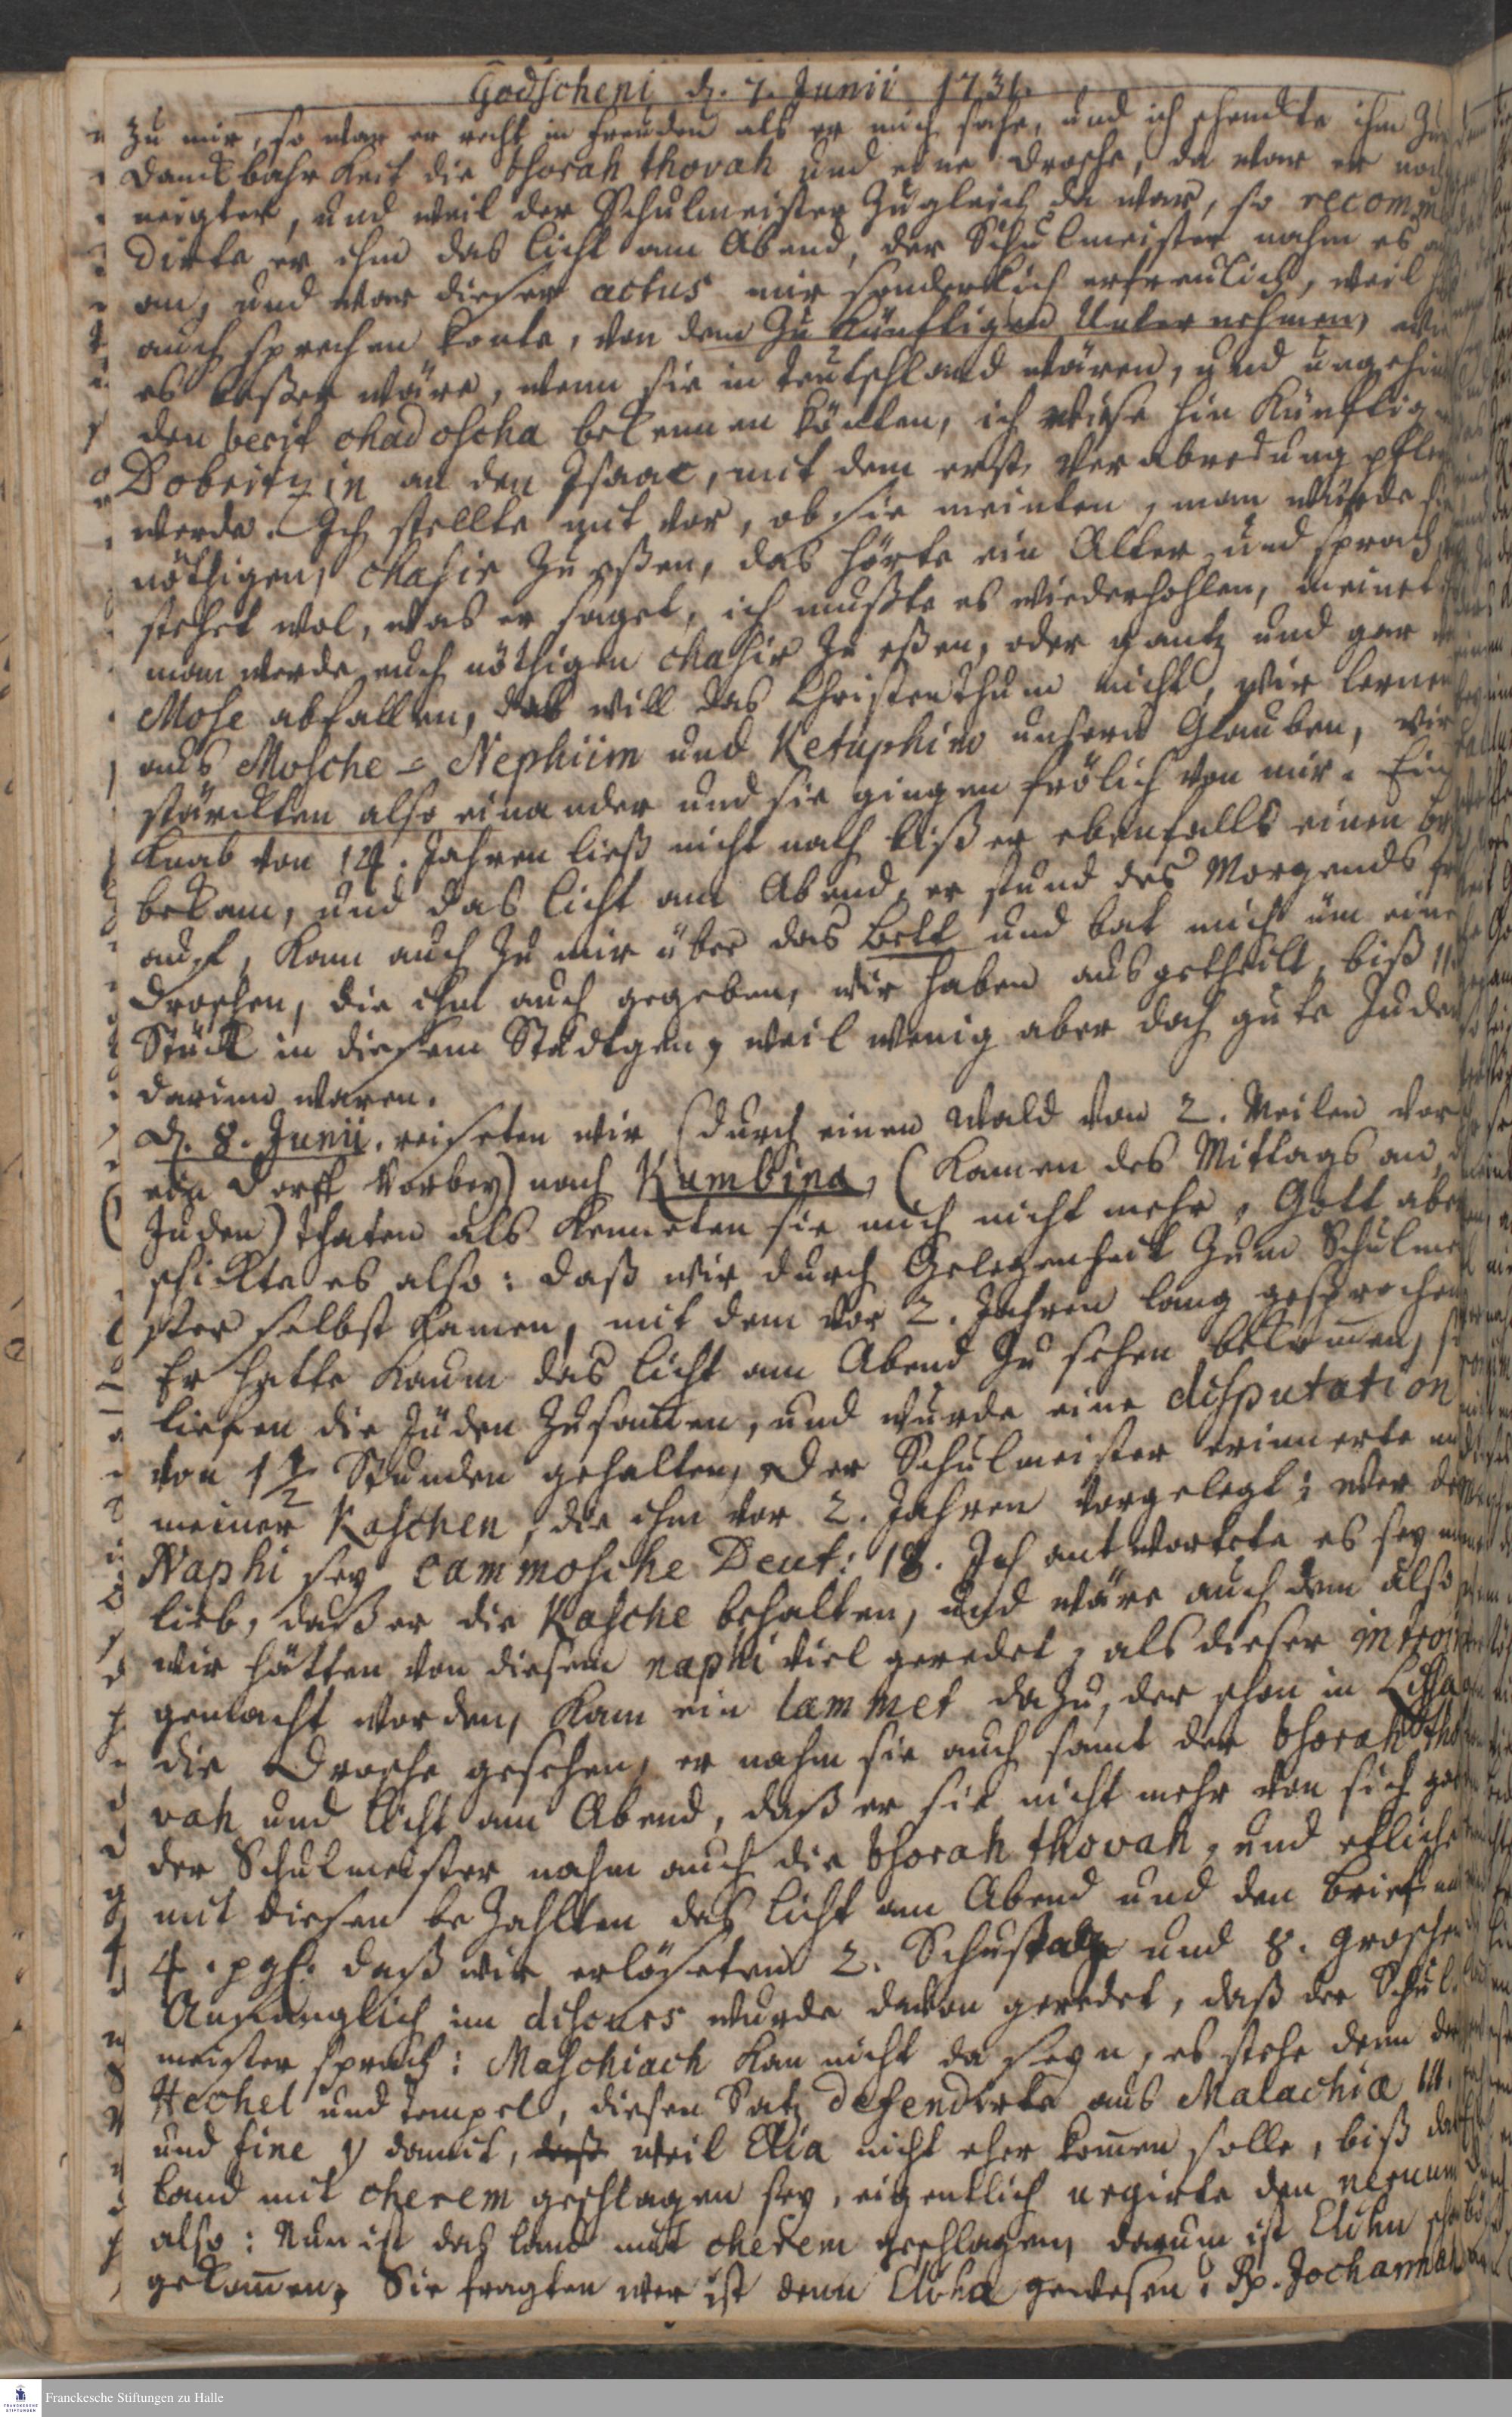 Godscheni d. 7. Junii 1731.
zu mir, so war er recht in freuden als er mich sahe, und ich schenckte ihm zur
Danckbahrkeit die thorah thovah und eine Drosche, da war er noch
neigter, und weil der Schulmeister zugleich da war, so recommen
dirte er ihm das licht am Abend, der Schulmeister nahm es
an, und war dieser actus mir sonderlich erfreulich, weil
auch sprechen konte, von dem zu künfftigen Unternehmen, wie
es besser wäre, wenn sie in teutschland wären, und ungehin
den berit chadoscha bekennen könten, ich weise hin künfftig
Dobritzin an den Isaac, mit dem erst verabredung pfle
werde. Ich stellte mit vor, ob sie meinten, man würde sie
nöthigen, chasir zu essen, das hörte ein Alter und sprach,
stehet wol, was er saget, ich mußte es wiederhohlen, meinet
man werde euch nöthigen chasir zu essen, oder gantz und gar
Mose abfallen, das will das Christenthum nicht, wir lernen
aus Mosche = Nephiim und Ketuphim unsern Glauben, wir
stärckten also einander und sie gingen frölich von mir. Ein
Knab von 14. Jahren ließ nicht nach biß er ebenfalls einen br
bekam, und das licht am Abend, er stund des Morgends
auf, kam auch zu mir über das Bett und bat mich um eine
Droschen, die ihm auch gegeben, wir haben ausgetheilt biß 11.
Stück in diesem Städtgen, weil wenig aber doch gute Juden
darinn waren.
d. 8. Junii. reiseten wir (durch einen Wald von 2. Meilen vor
ein Dorff vorbey) nach Kumbina, (kamen des Mittags an,
Juden) thaten als kenneten sie mich nicht mehr, Gott aber
schickte es also: daß wir durch Gelegenheit zum Schulmei
ster selbst kamen, mit dem vor 2. Jahren lang gesprochen
Er hatte kaum das licht am Abend zu sehen bekommen, so
liefen die Juden zusammen, und wurde eine disputation
von 1 1/2 Stunden gehalten, der Schulmeister erinnerte
meiner Kaschen, die ihm vor 2. Jahren vorgelegt: wer der
Naphi sey cammosche Deut: 18. Ich antwortete es sey mir
lieb, daß er die Kasche behalten, und wäre auch dem also
wir hätten von diesem naphi viel geredet, als dieser introit
gemacht worden, kam ein lammet dazu, der schon in Lissa
die Drosche gesehen, er nahm sie auch samt der thorah tho
vah und licht am Abend, daß er sie nicht mehr von sich
der Schulmeister nahm auch die thorah thovah, und etliche
mit diesen bezahlten das licht am Abend und den brief
4. pgf. daß wir erlöseten 2. Schustack und 8. groschen
Anfänglich im discurs wurde davon geredet, daß der Schul-
meister sprach: Maschiach kan nicht da seyn, es stehe denn der
Hechel und tempel, diesen Satz defendirte aus Malachiæ III.
und fine y damit, weil Elia nicht eher kommen solle, biß das
land mit cherem geschlagen sey, eigentlich negirte den nexum
also: Nun ist das land mit cherem geschlagen, darum ist Elihu
gekommen, Sie fragten wer ist denn Elihu gewesen? Rp. Jochannan
Franckesche Stiftungen zu Halle